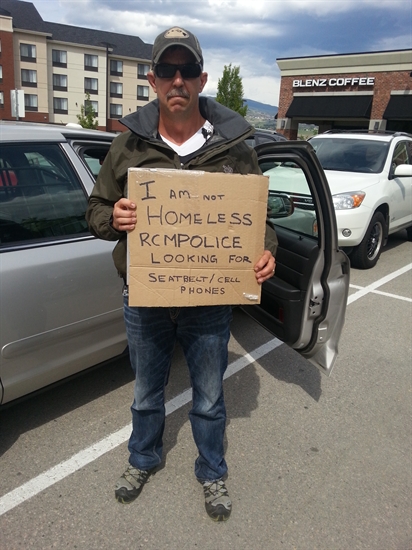 BLENZ COFFEE
I AM NOT
HOMELESS
RCMPOLICE
LOOKING FOR
SEATBELT/CELL
PHONES